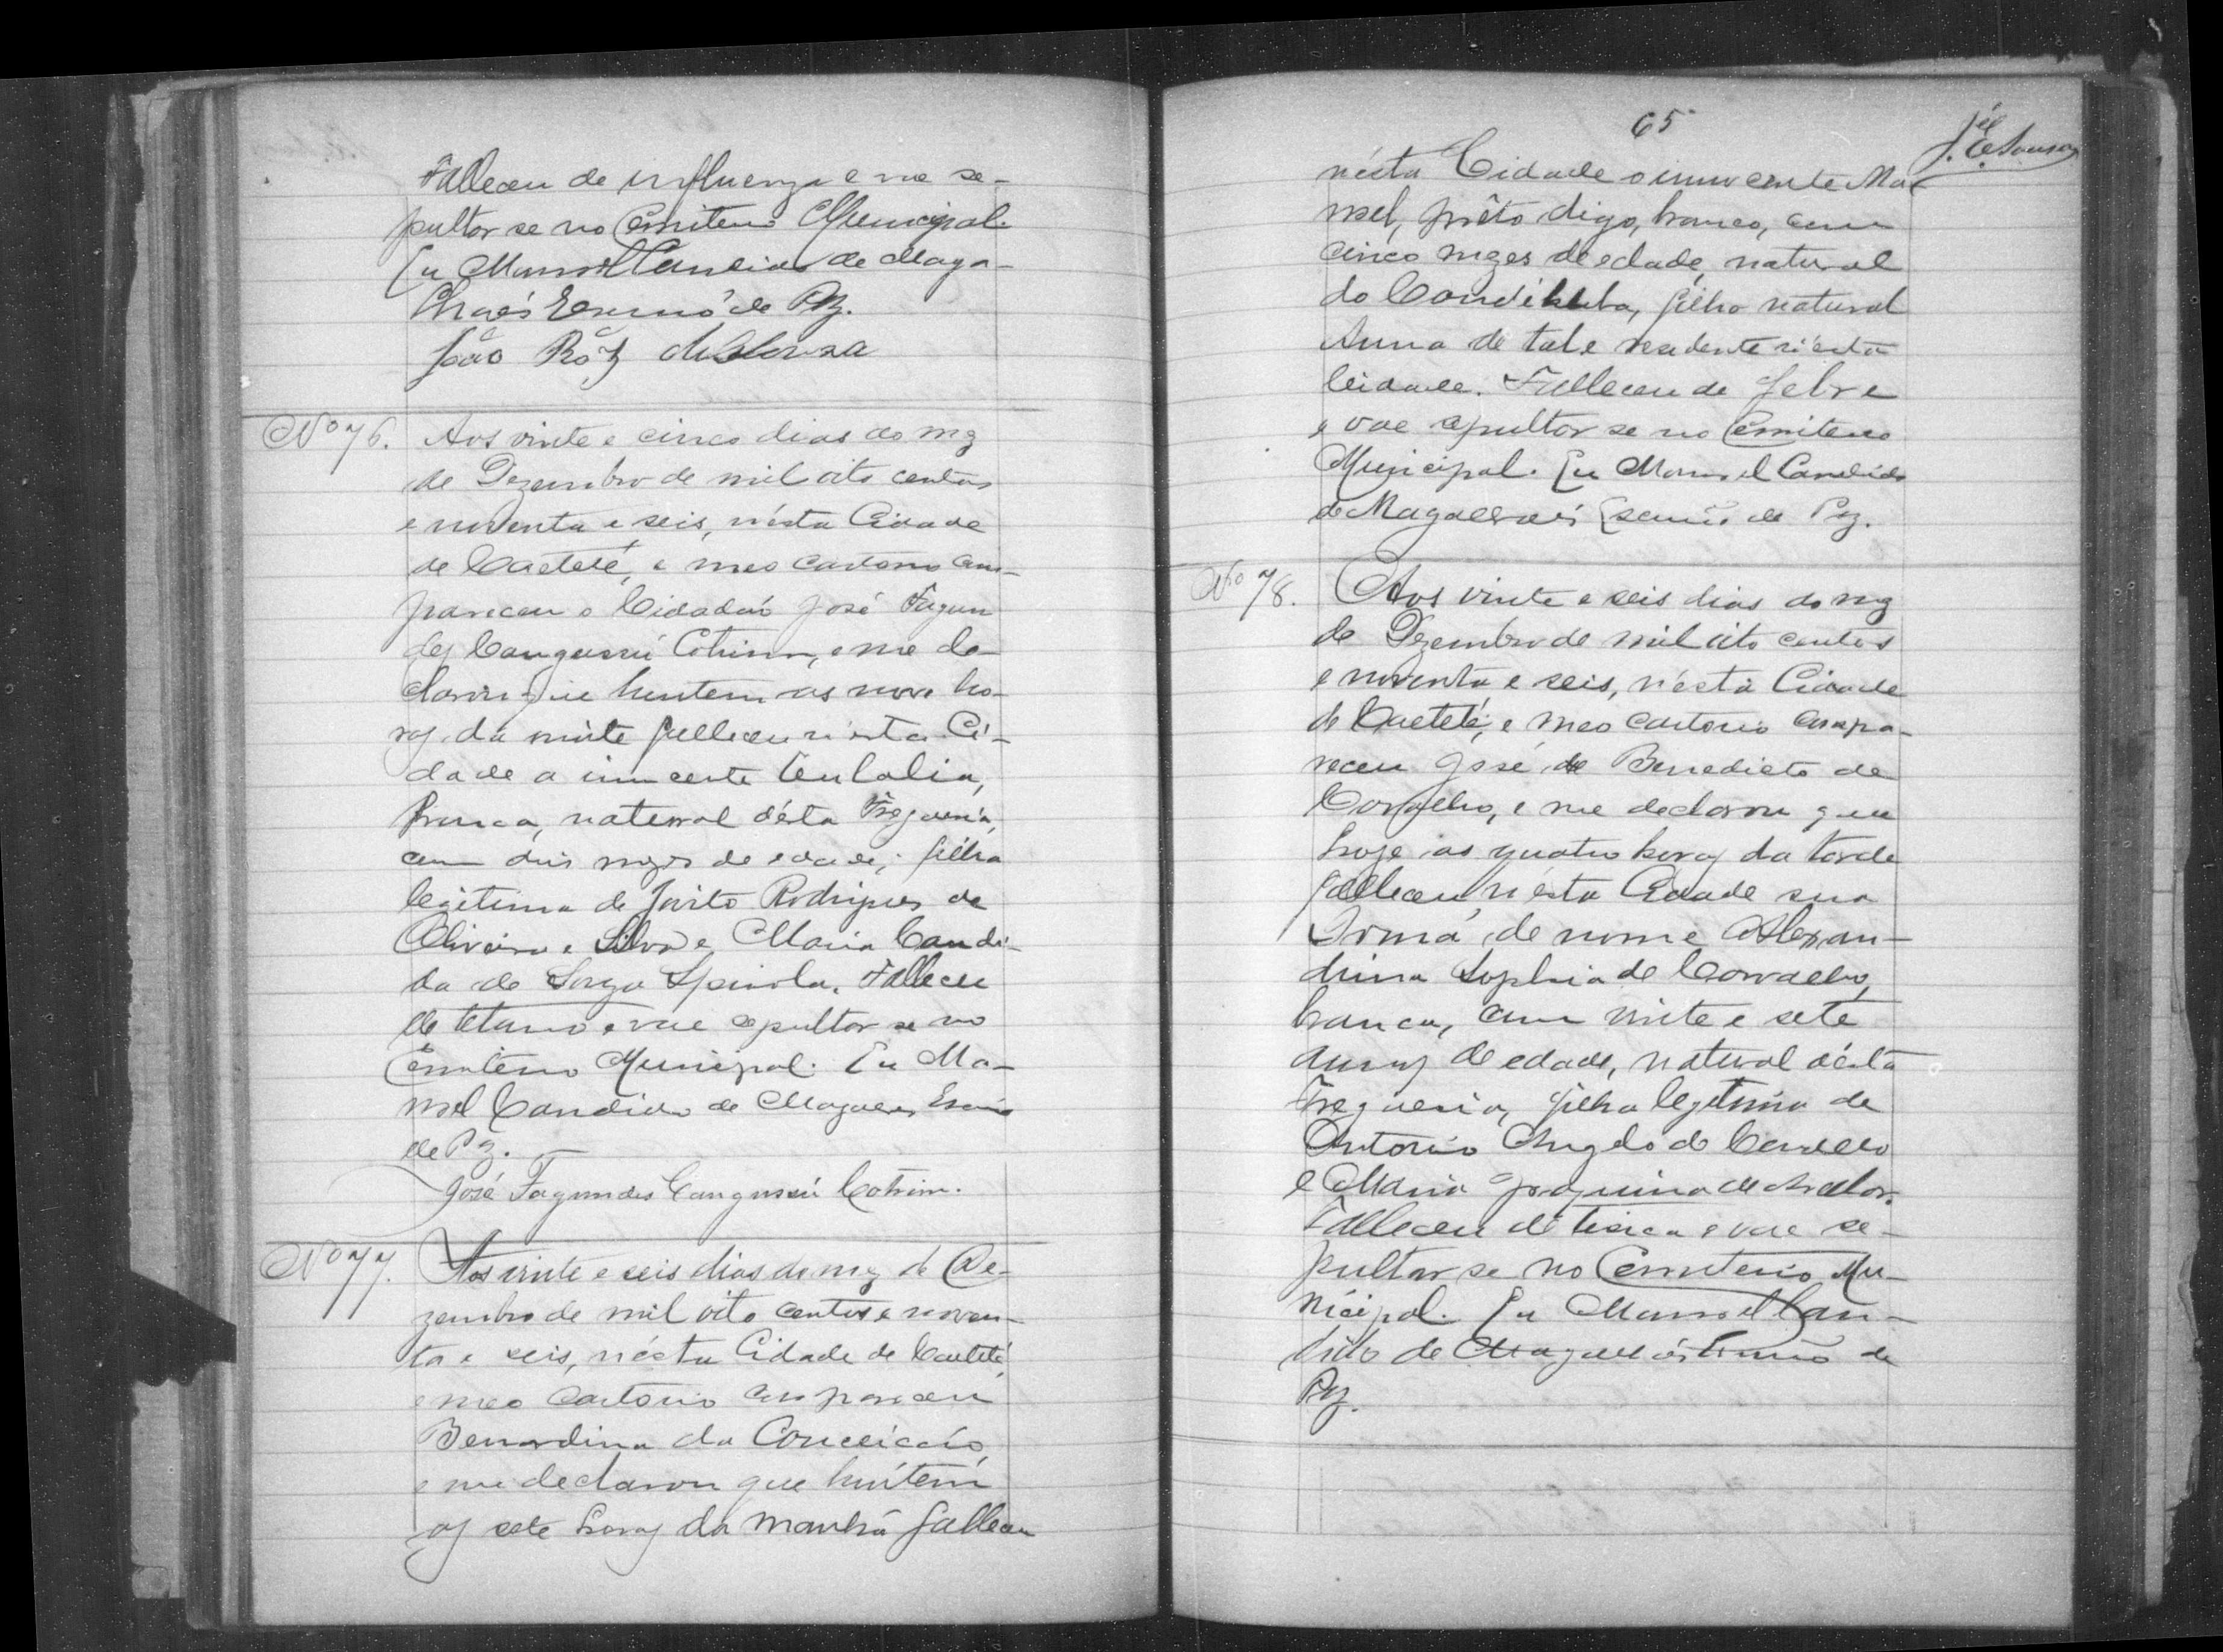 Falleceu de influenza e vae se-
pultar se no Cemiterio Municipal.
Eu Manoel Candido de Maga-
lhaẽs Escrivaõ de Paz.
João Roz de Souza
Nº 76. Aos vinte e cinco dias do mez
de Dezembro de mil oito centos
e noventa e seis, n'ésta Cidade
de Caeteté, e meo cartorio com-
pareceu o Cidadaõ José Fagun
des Cangussú Cotrim, e me de-
clarou que hontem as nove ho-
ras da noite falleceu n'esta Ci-
dade a innocente Eulalia,
branca, natural d'ésta Freguesia,
com dois mezes de edade; filha
legitima de Rodrigues de
Oliveira e Silva e Maria Candi-
da de Souza Spinola. Falleceu
de tetano e vae sepultar se no
Cemiterio Municipal. Eu Ma-
noel Candido de Magalhes Escrivaõ
de Paz.
José Fagundes Cangussú Cotrim.
Nº 77. Aos vinte e seis dias do mez de De-
zembro de mil oito centos e noven-
ta e seis, n'ésta Cidade de Caeteté,
e meo cartorio compareceu
Bernardina da Conceicaõ,
e me declarou que hontem
as sete horas da manhã falleceu
65
n'ésta Cidade o innocente Ma-
noel, prêto digo, branco, com
cinco mezes de edade, natural
do Condeúba, filho natural
Anna de tal e residente n'ésta
Cidade. Falleceu de febre
e vae sepultar se no Cemiterio
Municipal. Eu Manoel Candido
de Magalhaẽs Escrivaõ de Paz.
Nº 78. Aos vinte e seis dias do mez
de Dezembro de mil oito centos
e noventa e seis, n'ésta Cidade
de Caeteté, e meo cartorio compa-
receu José de Benedicto de
Carvalho, e me declarou que
hoje as quatro horas da tarde
falleceu n'ésta Cidade sua
Irmã de nome Alexan-
drina Sophia de Carvalho,
branca, com vinte e sete
annos de edade, natural d'ésta
Freguesia, filha legitima de
Antonio Angelo de Carvalho
e Maria Joaquina de
Falleceu de tisica e vae se-
pultar se no Cemiterio Mu-
nicipal. Eu Manoel Can-
dido de Magalhaẽs Escrivaõ de
Paz.